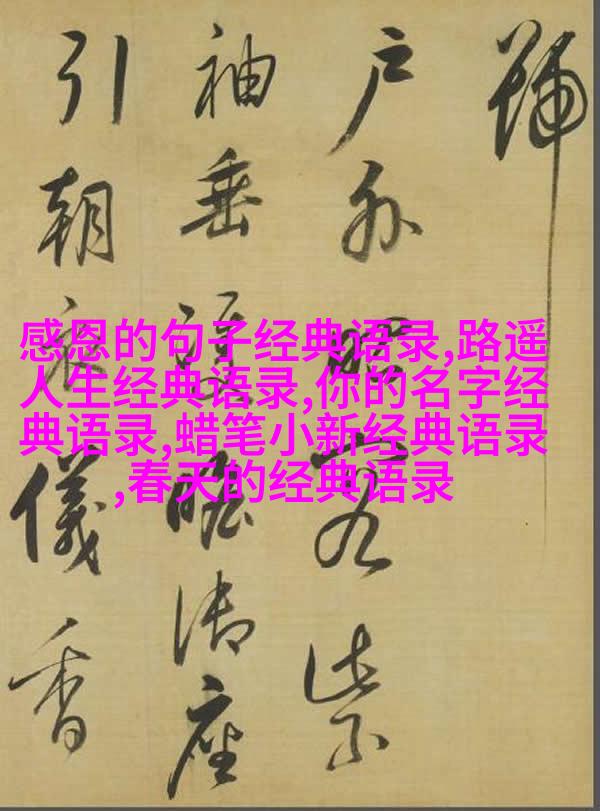 號
户外昭容紫
袖垂雙瞻御座
引朝儀香
感恩的句子经典语录,路遥
人生经典语录,你的名字经
典语录,蜡笔小新经典语录
,春天的经典语录